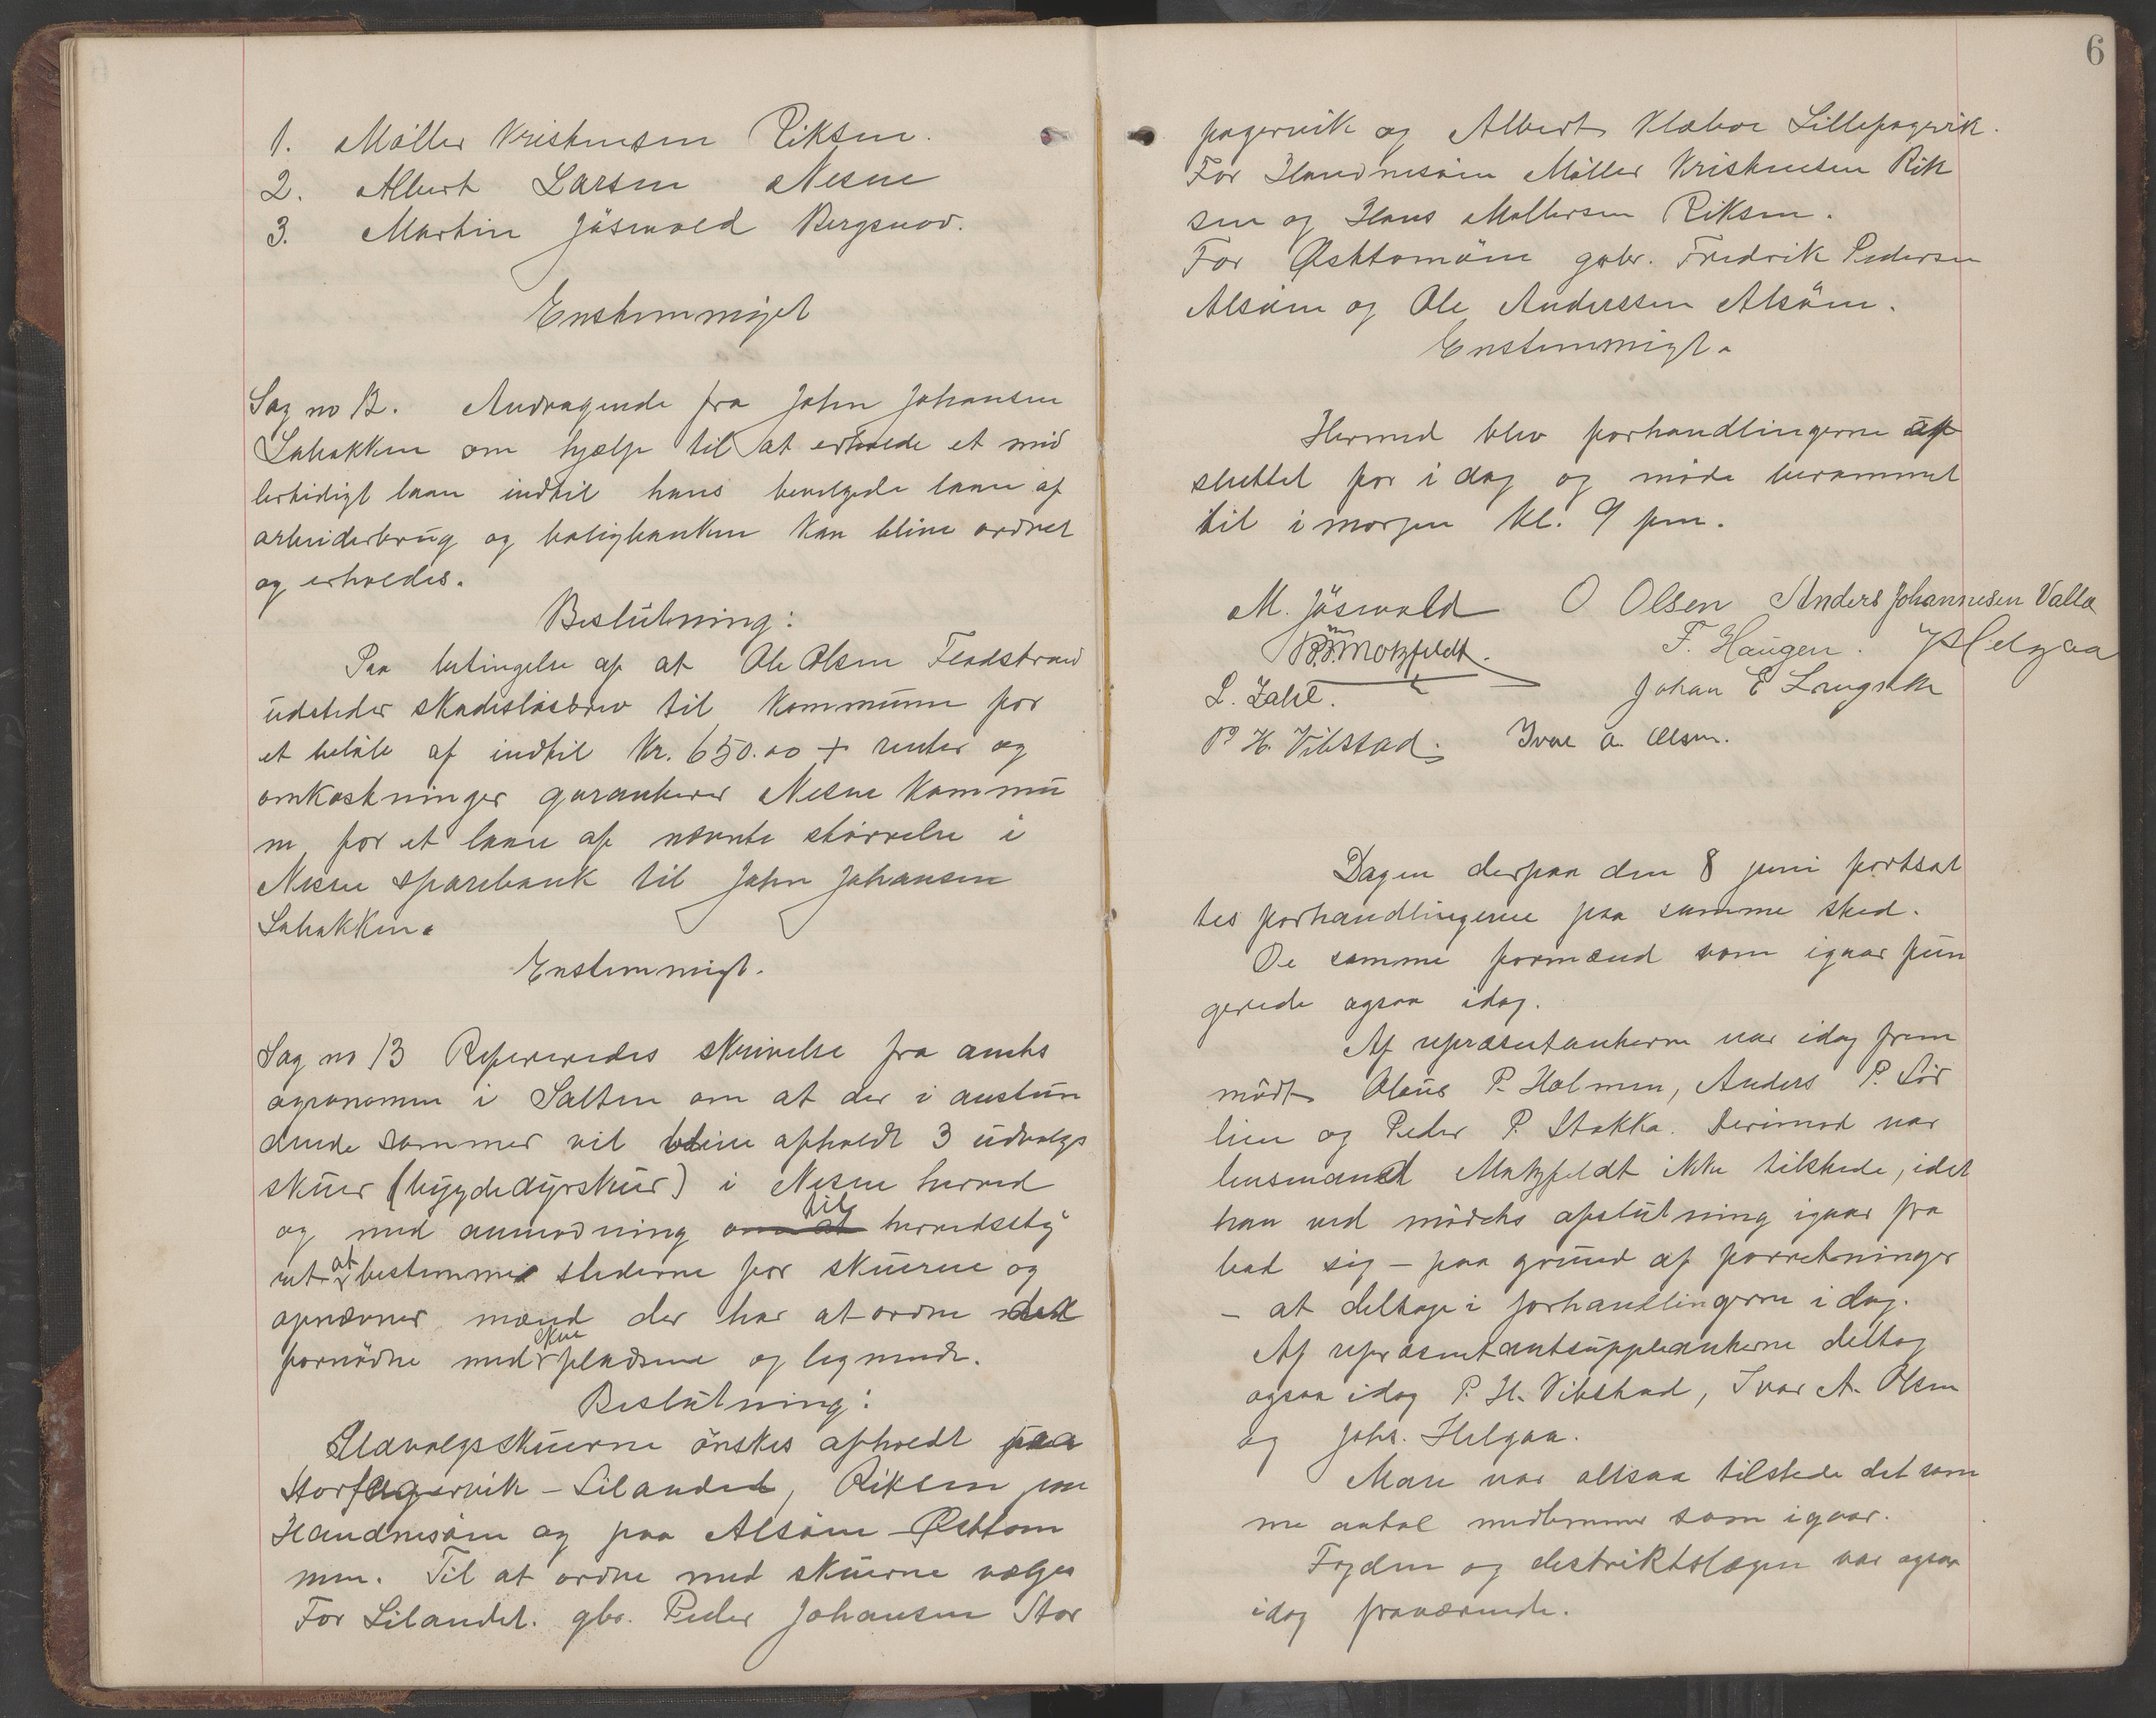 1. Möller Kristensen Riksen.
2. Albert Larsen Nesne
3. Martin Jösevold Bergsnov.
Enstemmiget
Sag no 12. Andragende fra John Johansen
Labakken om hjælp til at erholde et mid
lertidigt laan indtil hans bevilgede laan af
arbeiderbrug og boligbanken kan blive ordnet
og erholdes.
Beslutning:
Paa betingelse af at Ole Olsen Fladstrand
udsteder skadeslösbrev til kommunen for
et belöb af indtil Kr. 650.00 + renter og
omkostninger garanterer Nesne Kommu
ne for et laan af nævnte störrelse i
Nesne sparebank til John Johansen
Labakken.
Enstemmigt.
Sag no 13 Refereredes skrivelse fra amts
agronomen i Salten om at der i anstun
dende sommer vil blive afholdt 3 udvalgs
skuer (bygdedyrskuer) i Nesne herred
og med anmodning om at til herredssty
ret at bestemme stederne for skuerne og
opnævner mænd der har at ordne det
fornödne med skuepladsene og lignende.
Beslutning:
Udvalgsskuerne önskes afholdt paa
Storfagervik - Lilandet, Riksen paa
Handnesöen og paa Alsöen - Østtom
men. Til at ordne med skuerne vælges
For Lilandet. gbr. Peder Johansen Stor
6
fagervik og Albert Klæboe Lillefagervik.
For Handnesöen Möller Kristensen Rik
sen og Hans Mollersen Riksen.
For Østtommen gbr. Fredrik Pedersen
Alsöen og Ole Anderssen Alsöen.
Enstemmigt.
Hermed blev forhandlingerne af
sluttet for i dag og möde berammet
til i morgen kl. 9 fm.
M. Jösevold O Olsen Anders Johannesen Valla
Motzfeldt. F. Haugen. Helgaa
L. Zahl. Johan E
P H. Vibstad. Ivar A. Olsen.
Dagen derpaa den 8 juni fortsat
tes forhandlingerne paa samme sted.
De samme formænd som igaar fun
gerede ogsaa idag.
Af repræsentanterne var idag frem
mödt Olaus P. Holmen, Anders P. Sör
lien og Peder P. Stokka. Derimod var
lensmand Motzfeldt ikke tilstede, idet
han ved mödets afslutning igaar fra
bad sig - paa grund af forretninger
- at deltage i forhandlingerne idag.
Af repræsentantsuppleanterne deltog
ogsaa idag P. H. Vibstad, Ivar A. Olsen
og Johs. Helgaa.
Man var altsaa tilstede det sam
me antal medlemmer som igaar.
Fogden og distriktslægen var ogsaa
idag fraværende.